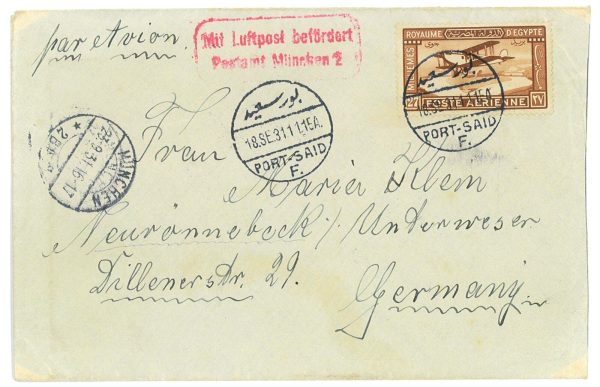 par Avion.
Mit Luftpost befördert
Postamt München 2
ROYAUME D'EGYPTE
MILLIEMES
27 POSTE AERIENNE ٢٧
بور سعيد
18.SE.31 1 1.15A.
PORT-SAID
F.
بور سعيد
PORT-SAID
F.
MÜNCHEN
Frau
Marie Klem
Neurönnebeck / Unterweser
Dillenerstr. 29.
Germany